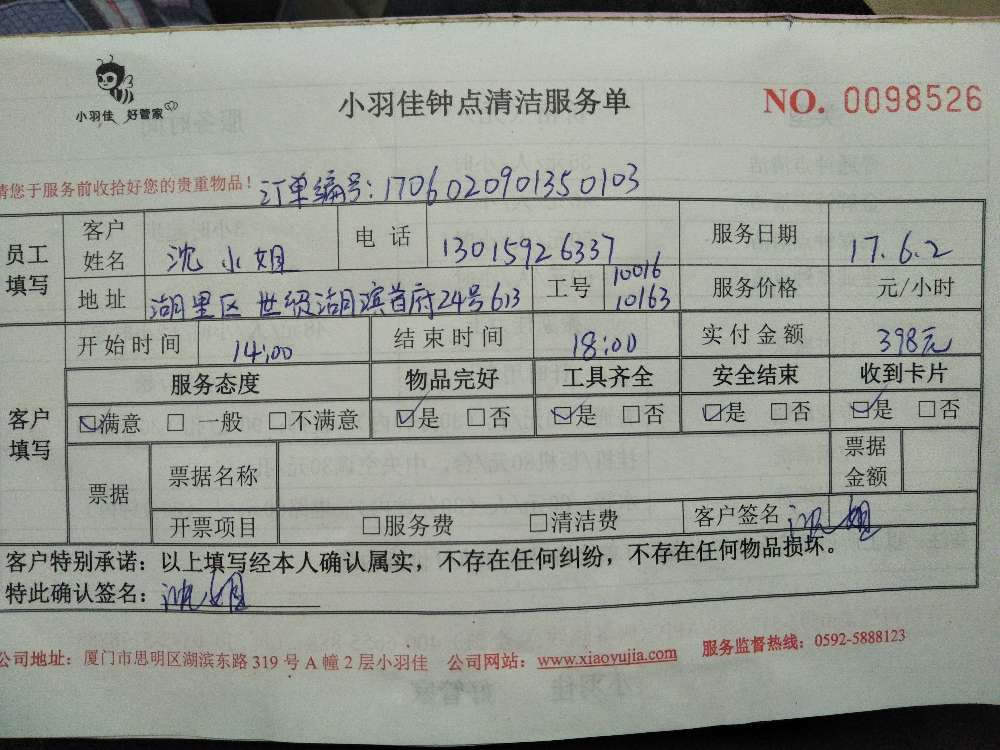 小羽佳 好管家
小羽佳钟点清洁服务单
NO. 0098526
请您于服务前收拾好您的贵重物品!
订单编号:170602090135010​3
员工填写 客户姓名 沈小姐 电话 13015926337 服务日期 17.6.2
地址 湖里区世级湖滨首府24号613 工号 10016 10163 服务价格 元/小时
客户填写 开始时间 14:00 结束时间 18:00 实付金额 398元
服务态度 物品完好 工具齐全 安全结束 收到卡片
☑满意 □一般 □不满意 ☑是 □否 ☑是 □否 ☑是 □否 ☑是 □否
票据 票据名称 票据金额
开票项目 □服务费 □清洁费 客户签名 沈姐
客户特别承诺:以上填写经本人确认属实,不存在任何纠纷,不存在任何物品损坏。
特此确认签名:沈姐
公司地址:厦门市思明区湖滨东路 319 号 A 幢 2 层小羽佳 公司网站:www.xiaoyujia.com 服务监督热线:0592-5888123